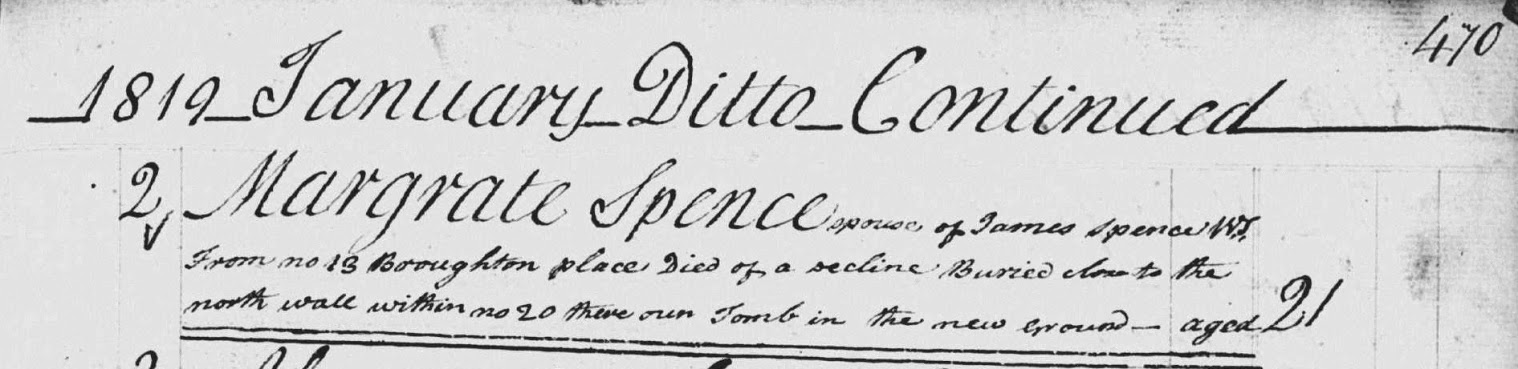 470
1819 January Ditto Continued
2 Margrate Spence spouse of James Spence WS.
From no 13 Broughton place Died of a decline Buried close to the
north wall within no 20 there oun Tomb in the new Ground — aged 21